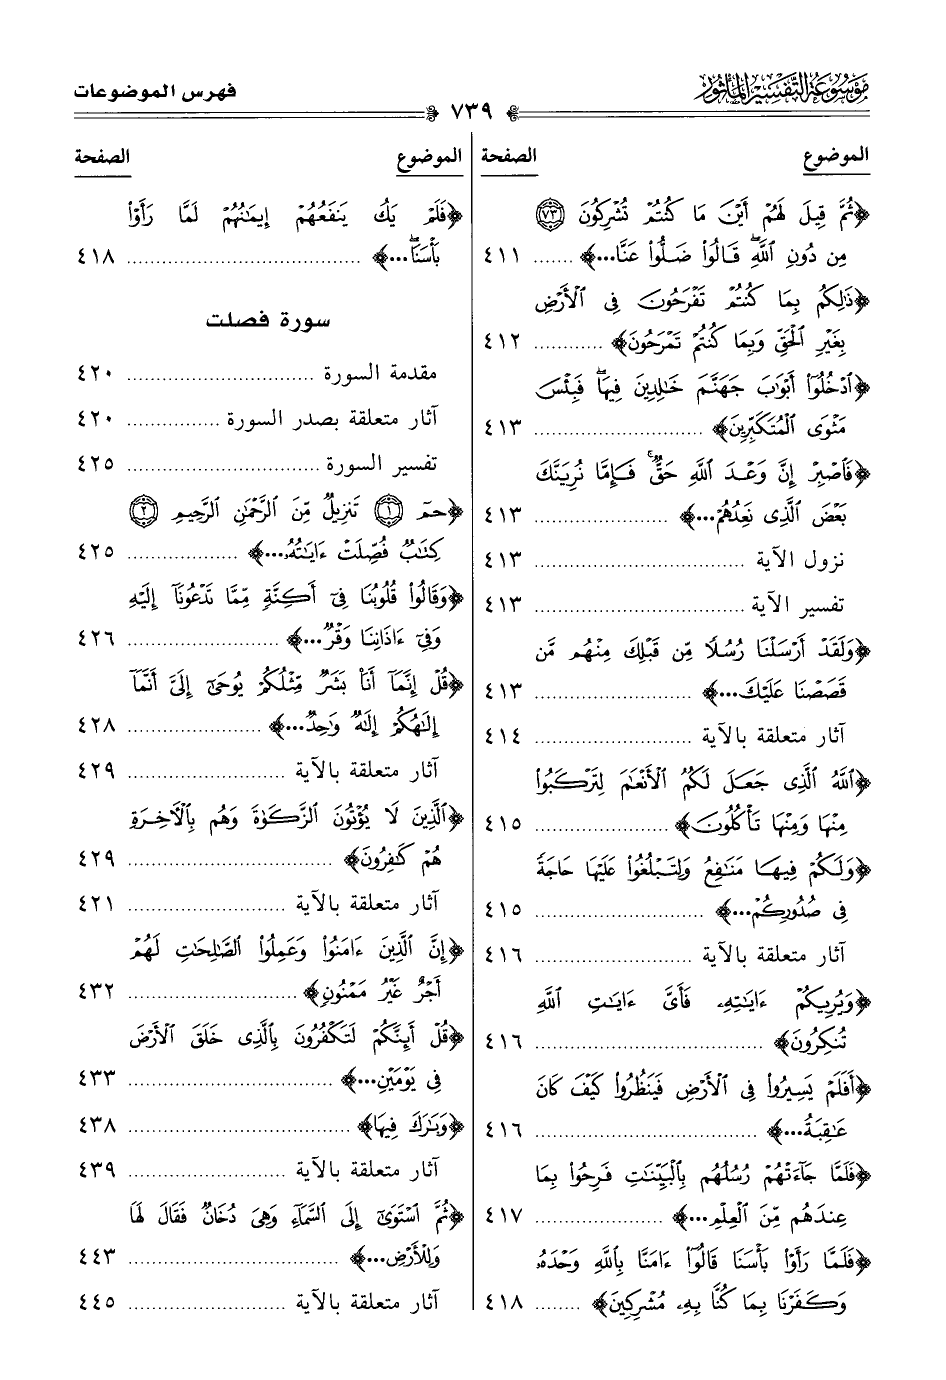 موسوعة التفسير المأثور
فهرس الموضوعات
٧٣٩
الموضوع الصفحة
﴿ثُمَّ قِيلَ لَهُمْ أَيْنَ مَا كُنتُمْ تُشْرِكُونَ ٧٣
مِن دُونِ ٱللَّهِۖ قَالُوا۟ ضَلُّوا۟ عَنَّا...﴾ ....... ٤١١
﴿ذَٰلِكُم بِمَا كُنتُمْ تَفْرَحُونَ فِى ٱلْأَرْضِ
بِغَيْرِ ٱلْحَقِّ وَبِمَا كُنتُمْ تَمْرَحُونَ﴾ ............ ٤١٢
﴿ٱدْخُلُوٓا۟ أَبْوَٰبَ جَهَنَّمَ خَٰلِدِينَ فِيهَاۖ فَبِئْسَ
مَثْوَى ٱلْمُتَكَبِّرِينَ﴾ ............................ ٤١٣
﴿فَٱصْبِرْ إِنَّ وَعْدَ ٱللَّهِ حَقٌّۚ فَإِمَّا نُرِيَنَّكَ
بَعْضَ ٱلَّذِى نَعِدُهُمْ...﴾ ...................... ٤١٣
نزول الآية ................................... ٤١٣
تفسير الآية ................................... ٤١٣
﴿وَلَقَدْ أَرْسَلْنَا رُسُلًا مِّن قَبْلِكَ مِنْهُم مَّن
قَصَصْنَا عَلَيْكَ...﴾ .......................... ٤١٣
آثار متعلقة بالآية .......................... ٤١٤
﴿ٱللَّهُ ٱلَّذِى جَعَلَ لَكُمُ ٱلْأَنْعَٰمَ لِتَرْكَبُوا۟
مِنْهَا وَمِنْهَا تَأْكُلُونَ﴾ ...................... ٤١٥
﴿وَلَكُمْ فِيهَا مَنَٰفِعُ وَلِتَبْلُغُوا۟ عَلَيْهَا حَاجَةً
فِى صُدُورِكُمْ...﴾ ............................ ٤١٥
آثار متعلقة بالآية .......................... ٤١٦
﴿وَيُرِيكُمْ ءَايَٰتِهِۦ فَأَىَّ ءَايَٰتِ ٱللَّهِ
تُنكِرُونَ﴾ ...................................... ٤١٦
﴿أَفَلَمْ يَسِيرُوا۟ فِى ٱلْأَرْضِ فَيَنظُرُوا۟ كَيْفَ كَانَ
عَٰقِبَةُ...﴾ ..................................... ٤١٦
﴿فَلَمَّا جَآءَتْهُمْ رُسُلُهُم بِٱلْبَيِّنَٰتِ فَرِحُوا۟ بِمَا
عِندَهُم مِّنَ ٱلْعِلْمِ...﴾ ..................... ٤١٧
﴿فَلَمَّا رَأَوْا۟ بَأْسَنَا قَالُوٓا۟ ءَامَنَّا بِٱللَّهِ وَحْدَهُۥ
وَكَفَرْنَا بِمَا كُنَّا بِهِۦ مُشْرِكِينَ﴾ ........ ٤١٨
الموضوع الصفحة
﴿فَلَمْ يَكُ يَنفَعُهُمْ إِيمَٰنُهُمْ لَمَّا رَأَوْا۟
بَأْسَنَاۖ...﴾ ....................................... ٤١٨
سورة فصلت
مقدمة السورة ............................... ٤٢٠
آثار متعلقة بصدر السورة ................ ٤٢٠
تفسير السورة ................................ ٤٢٥
﴿حمٓ ١ تَنزِيلٌ مِّنَ ٱلرَّحْمَٰنِ ٱلرَّحِيمِ ٢
كِتَٰبٌ فُصِّلَتْ ءَايَٰتُهُۥ...﴾ ................... ٤٢٥
﴿وَقَالُوا۟ قُلُوبُنَا فِىٓ أَكِنَّةٍ مِّمَّا تَدْعُونَآ إِلَيْهِ
وَفِىٓ ءَاذَانِنَا وَقْرٌ...﴾ ......................... ٤٢٦
﴿قُلْ إِنَّمَآ أَنَا۠ بَشَرٌ مِّثْلُكُمْ يُوحَىٰٓ إِلَىَّ أَنَّمَآ
إِلَٰهُكُمْ إِلَٰهٌ وَٰحِدٌ...﴾ ...................... ٤٢٨
آثار متعلقة بالآية .......................... ٤٢٩
﴿ٱلَّذِينَ لَا يُؤْتُونَ ٱلزَّكَوٰةَ وَهُم بِٱلْءَاخِرَةِ
هُمْ كَٰفِرُونَ﴾ .................................. ٤٢٩
آثار متعلقة بالآية .......................... ٤٢١
﴿إِنَّ ٱلَّذِينَ ءَامَنُوا۟ وَعَمِلُوا۟ ٱلصَّٰلِحَٰتِ لَهُمْ
أَجْرٌ غَيْرُ مَمْنُونٍ﴾ ............................ ٤٣٢
﴿قُلْ أَئِنَّكُمْ لَتَكْفُرُونَ بِٱلَّذِى خَلَقَ ٱلْأَرْضَ
فِى يَوْمَيْنِ...﴾ .................................. ٤٣٣
﴿وَبَٰرَكَ فِيهَا﴾ ..................................... ٤٣٨
آثار متعلقة بالآية .......................... ٤٣٩
﴿ثُمَّ ٱسْتَوَىٰٓ إِلَى ٱلسَّمَآءِ وَهِىَ دُخَانٌ فَقَالَ لَهَا
وَلِلْأَرْضِ...﴾ ................................... ٤٤٣
آثار متعلقة بالآية .......................... ٤٤٥